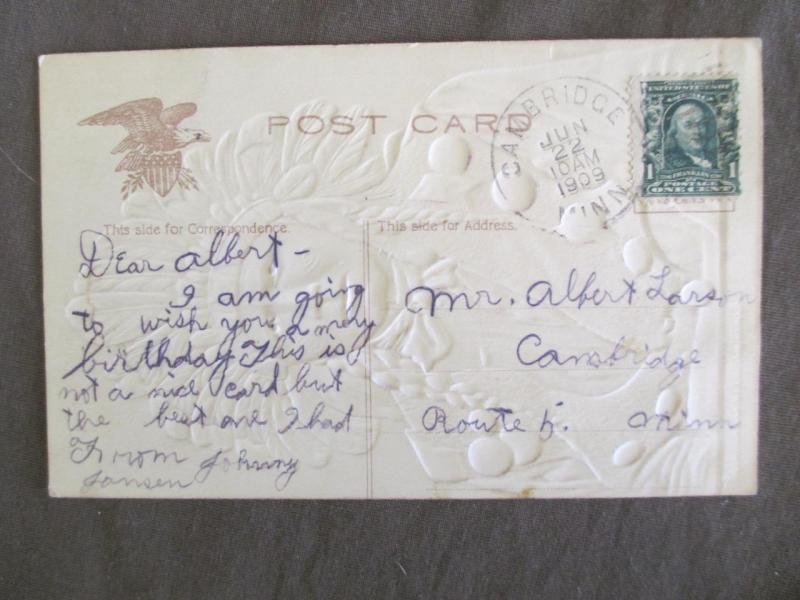 POST CARD
CAMBRIDGE
JUN
22
10AM
1909
MINN
UNITED STATES OF
AMERICA
1 FRANKLIN 1
POSTAGE
ONE CENT
This side for Correspondence.
This side for Address.
Dear albert –
I am going
to wish you a mery
birthday This is
not a nice card but
the best one I had
From Johnny
Jansen
Mr. Albert Larson
Cambridge
Route 5. Minn